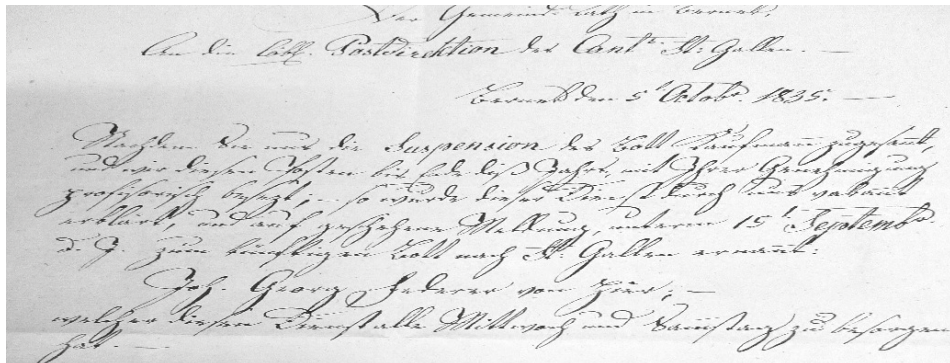 Der Gemeind Rath in Bernek,
An die löbl. Postdirektion des Cant.ˢ St: Gallen. —
Bernek den 5.ᵗ Octobʳ. 1835. —
Nachdem Sie uns die Suspension des Bott Kaufmann zugesandt,
und wir diesen Posten bis Ende dieß Jahrs, mit Ihrer Genehmigung
profisorisch besezt, – so wurde dieser Dienst durch uns vakant
erklärt, und auf geschehene Meldung, unterm 15.ᵗ Septembʳ.
d. J. zum künftigen Bott nach St: Gallen ernannt:
Joh. Georg Federer von hier, —
welcher diesen Dienst alle Mittwoch und Samstag zu besorgen
hat. —